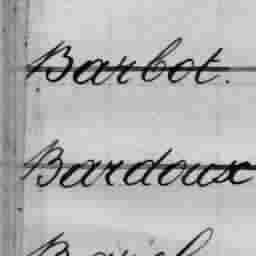 Barbot.
Bardoux